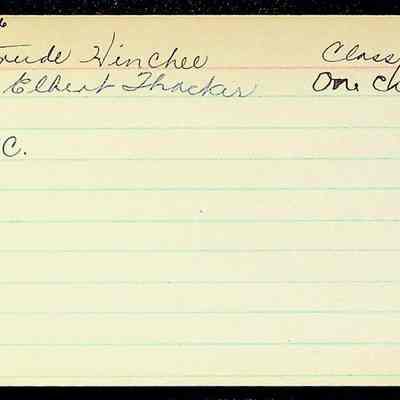 6
trude Hinchee Class
Elbert Thacker One Ch
C.